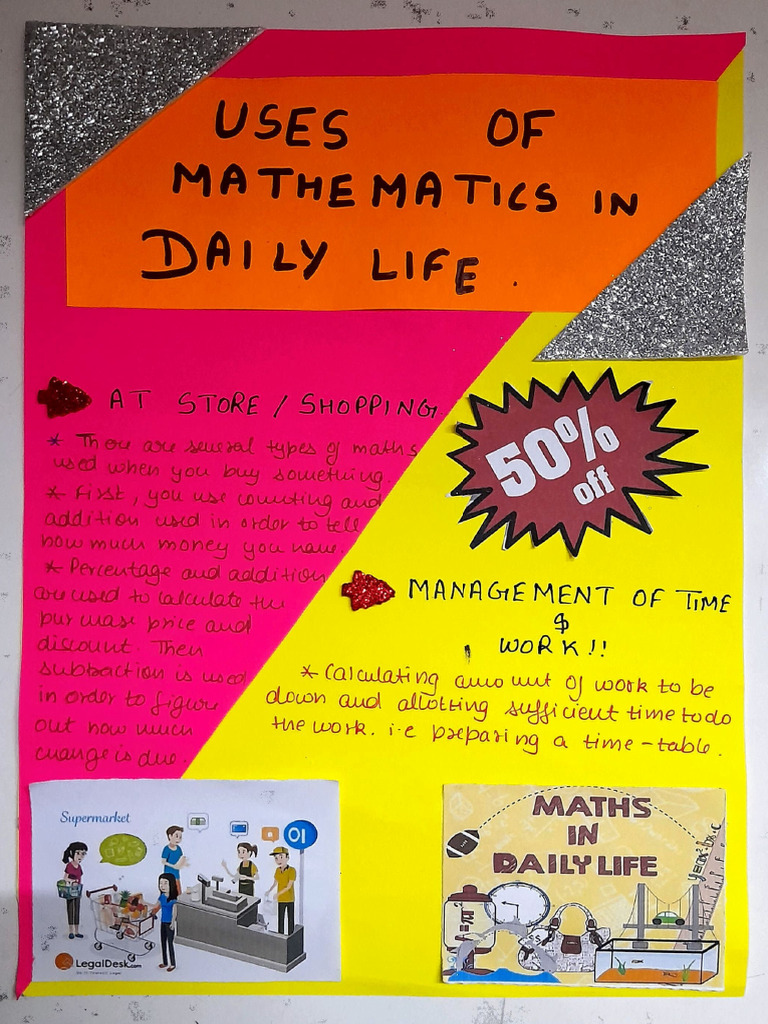 USES OF
MATHEMATICS IN
DAILY LIFE.
AT STORE / SHOPPING
* There are several types of maths
used when you buy something.
* First, you use counting and
addition used in order to tell
how much money you have.
* Percentage and addition
are used to calculate the
purchase price and
discount. Then
subtraction is used
in order to figure
out how much
change is due.
50%
off
MANAGEMENT OF TIME
$
WORK!!
* Calculating amount of work to be
down and allotting sufficient time to do
the work. i.e preparing a time-table.
Supermarket
01
LegalDesk.com
MATHS
IN
DAILY LIFE